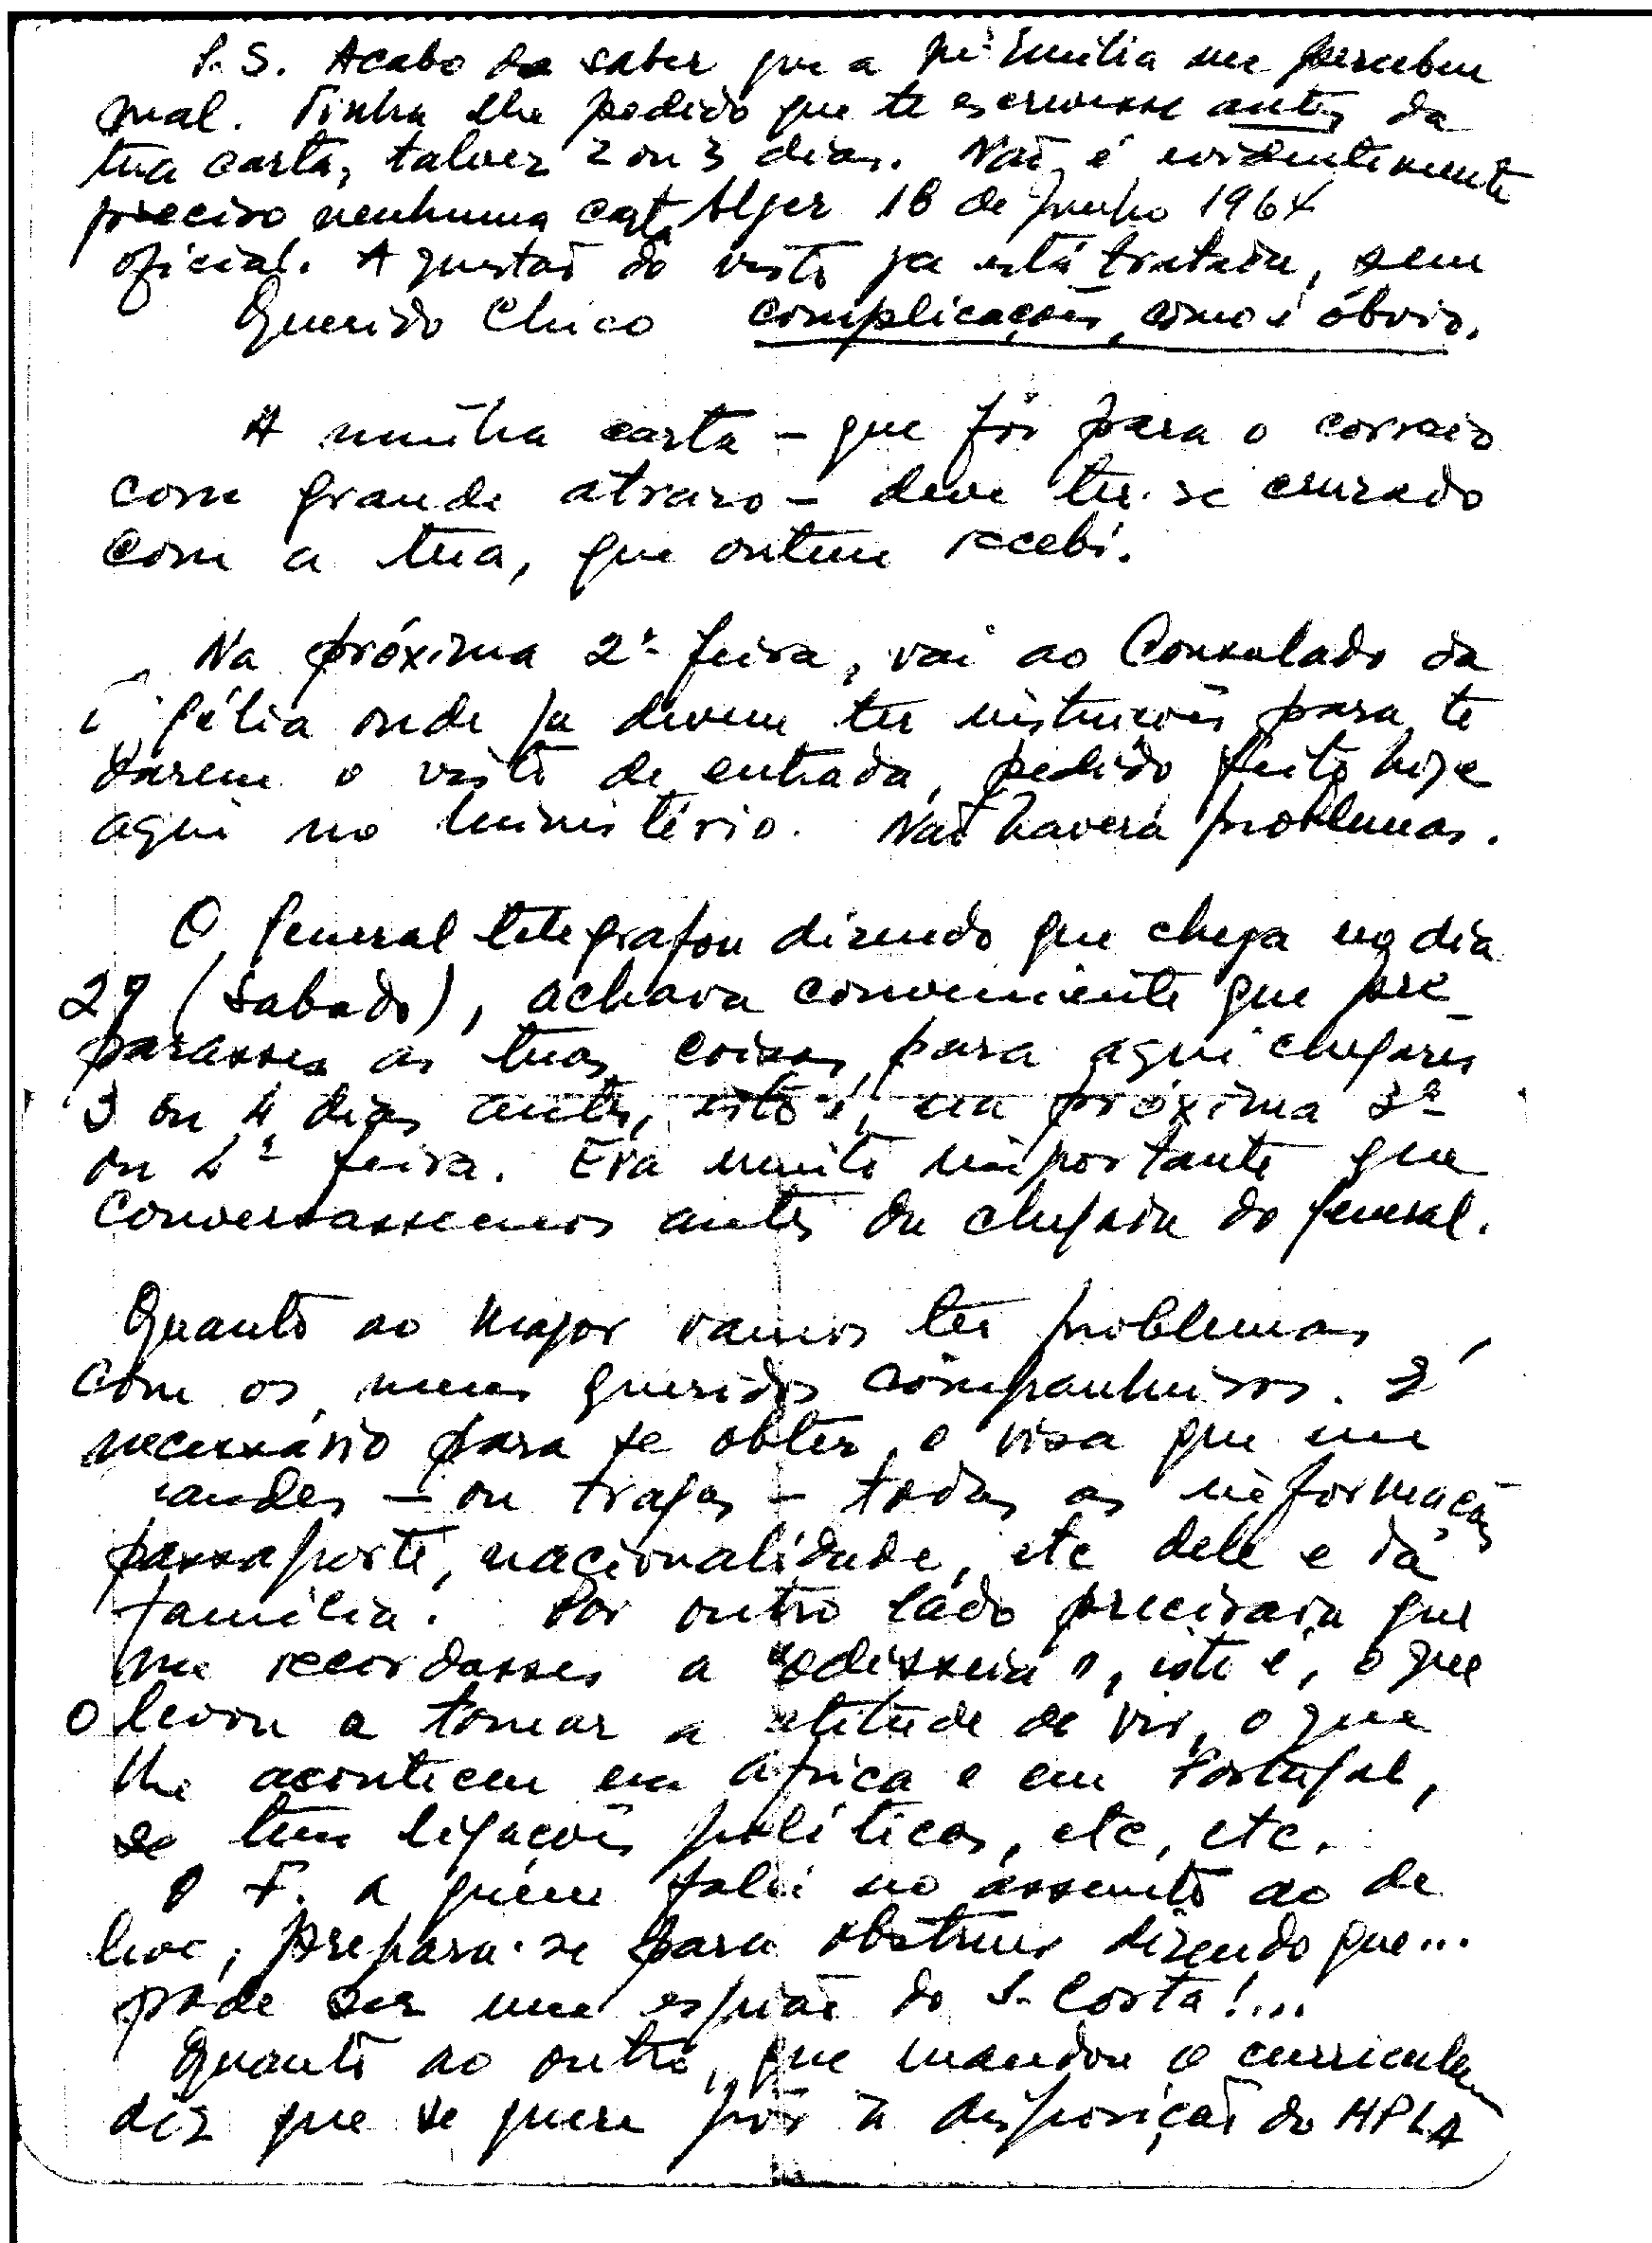 P.S. Acabo de saber que a Mª Emília me percebeu
mal. Tinha lhe pedido que te escrevesse antes da
tua carta, talvez 2 ou 3 dias. Não é evidentemente
preciso nenhuma carta
Alger 18 de Junho 1964
oficial. A questão do visto ja está tratada, sem
complicações, como é óbvio.
Querido Chico
A minha carta – que foi para o correio
com grande atrazo – deve ter-se cruzado
com a tua, que ontem recebi.
Na próxima 2ª feira, vai ao Consulado da
onde ja devem ter instruções para te
darem o visto de entrada, pedido feito hoje
aqui no Ministério. Não haverá problemas.
O General telegrafou dizendo que chega no dia
27 (sabado), achava conveniente que pre-
parasses as tuas coisas para aqui chegares
3 ou 4 dias antes, isto é, na próxima 3ª
ou 4ª feira. Era muito importante que
conversassemos antes da chegada do General.
Quanto ao Major vamos ter problemas
com os meus queridos companheiros. É
necessário para se obter o visa que me
mandes – ou tragas – todas as informações
passaporte, nacionalidade, etc dele e da
familia. Por outro lado precisava que
me recordasses a "odisseia", isto é, o que
o levou a tomar a atitude de vir, o que
lhe aconteceu em Africa e em Portugal,
se tem ligações políticas, etc, etc.
O F. a quem falei no assunto ao de
leve, prepara-se para obstruir dizendo que...
pode ser um espião do S. Costa!...
Quanto ao outro, que mandou o curriculum
diz que se quere pôr à disposição do MPLA